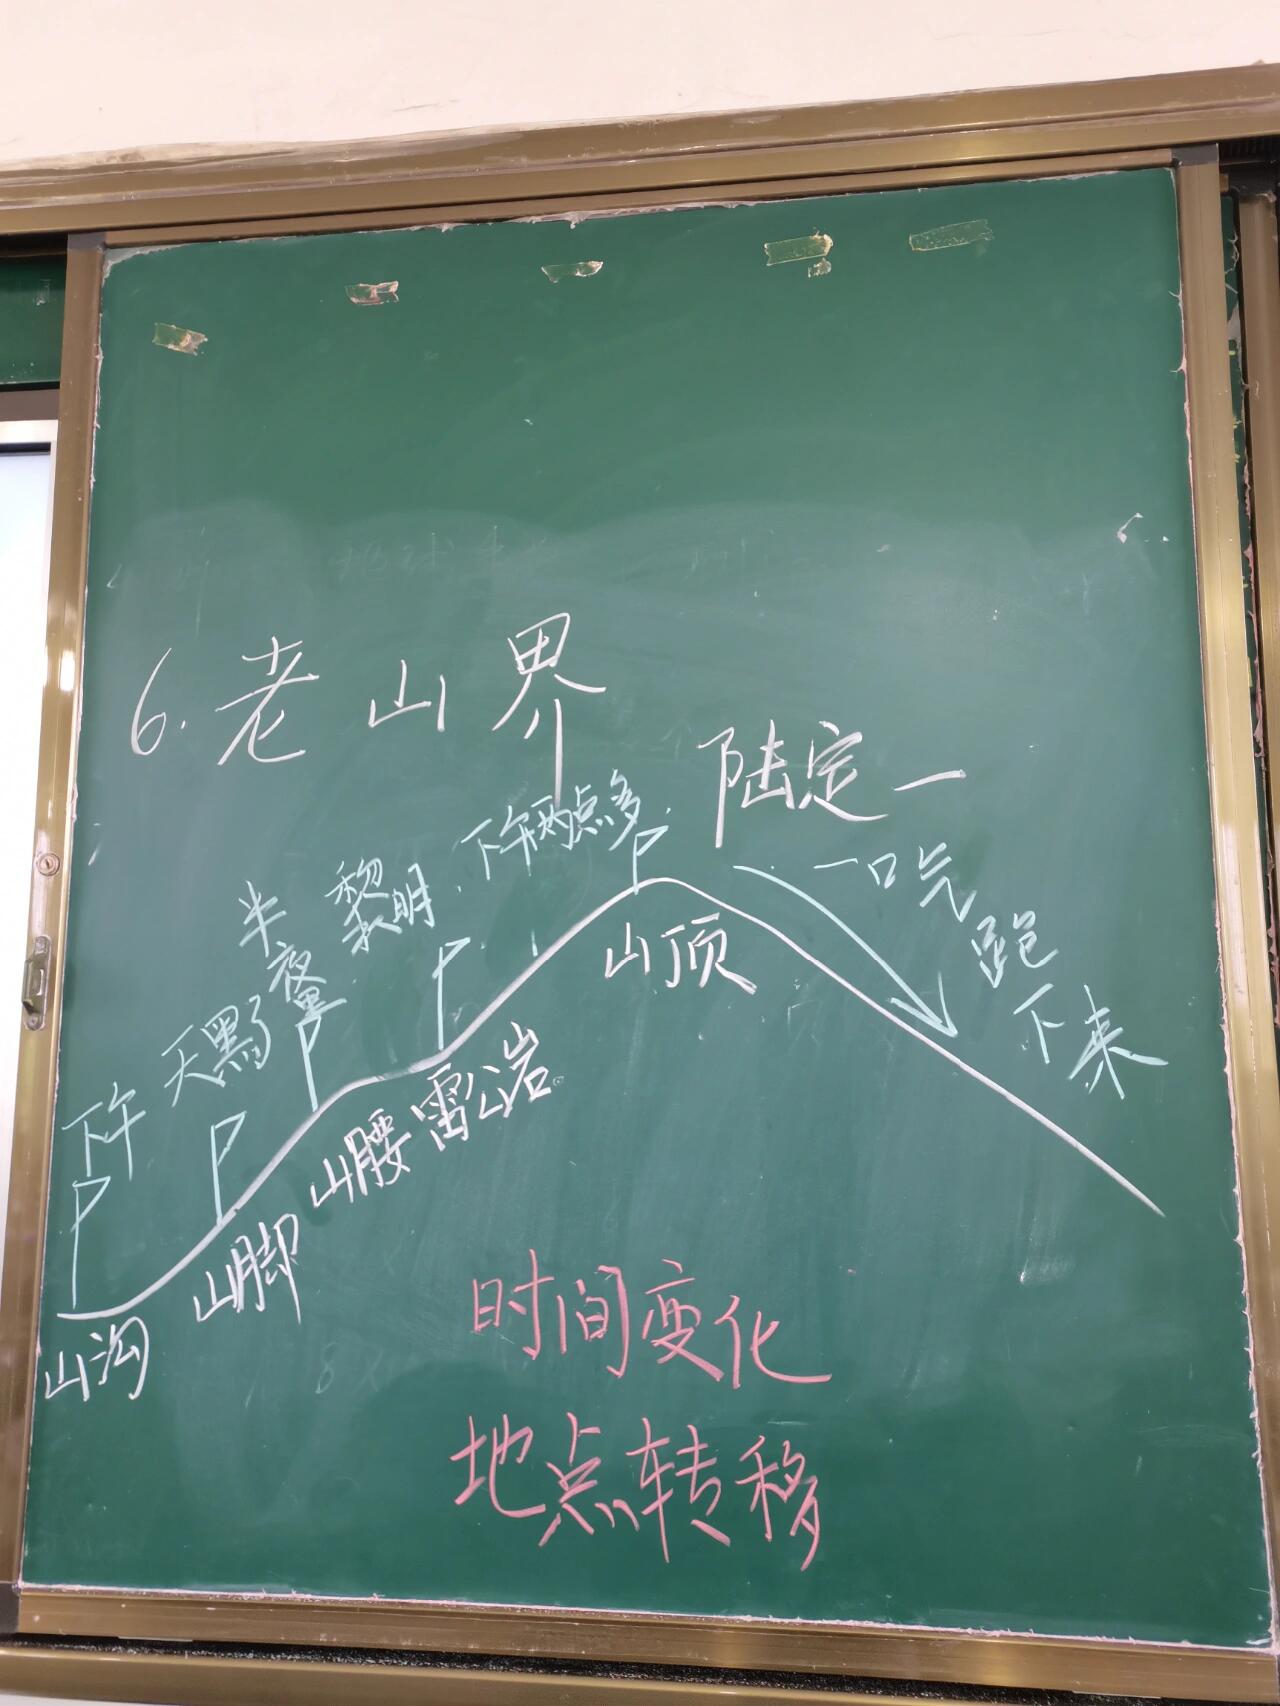 6.老山界
陆定一
下午 天黑了 半夜里 黎明 下午两点多
一口气跑下来
山沟 山脚 山腰 雷公岩 山顶
时间变化
地点转移